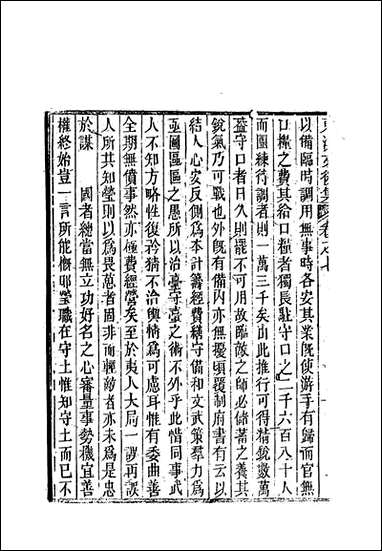 東溟文後集卷之七
以備臨時調用無事時各安其業旣使游手有歸而官無
口糧之費其給口糧者獨長駐守口之一千六百八十人
而團練待調者則一萬三千矣由此推行可得精銳數萬
蓋守口者日久則罷不可用故臨敵之師必儲蓄之養其
銳氣乃可戰也外旣有備內亦無擾頃覆制府書有云以
結人心安反側爲本計籌經費繕守備和文武策羣力爲
亟圖區區之愚所以治臺守臺之術不外乎此惜同事武
人不知方略性復矜猜不洽輿情爲可慮耳惟有委曲善
全期無僨事然亦極費經營矣至於夷人大局一謬再誤
人所其知瑩則以爲畏憊者固非而輕敵者亦未爲是忠
於謀　國者總當無立功好名之心審量事勢機宜善
權終始豈一言所能概耶瑩職在守土惟知守土而已不